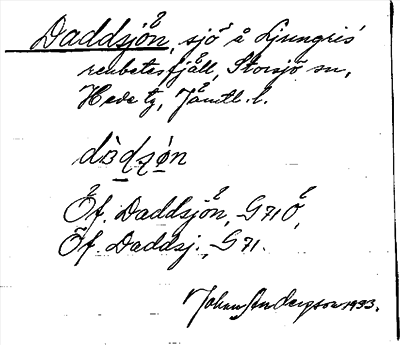 Daddsjön, sjö å Ljungris
renbetesfjäll, Storsjö sn,
Hede tg, Jämtl. l.
dàdʂǿn
Öf. Daddsjön, G 71 Ö,
Öf. Daddsj., G 71.
Johan Andersson 1933.